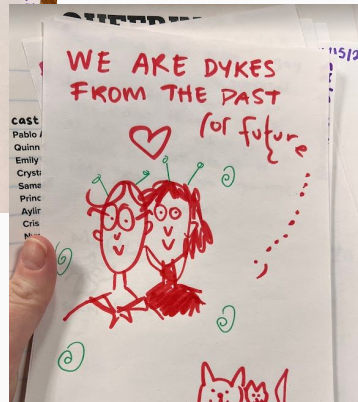 QUEERIN
WE ARE DYKES
FROM THE PAST
(or future
cast
Pablo
Quinn
Emily
Cryst
Sama
Princ
Aylin
Cris
15/2